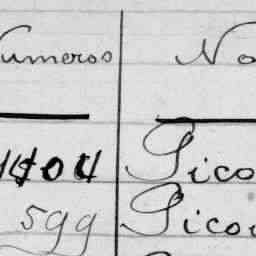 Numeros No
1404 Pico
599 Pico